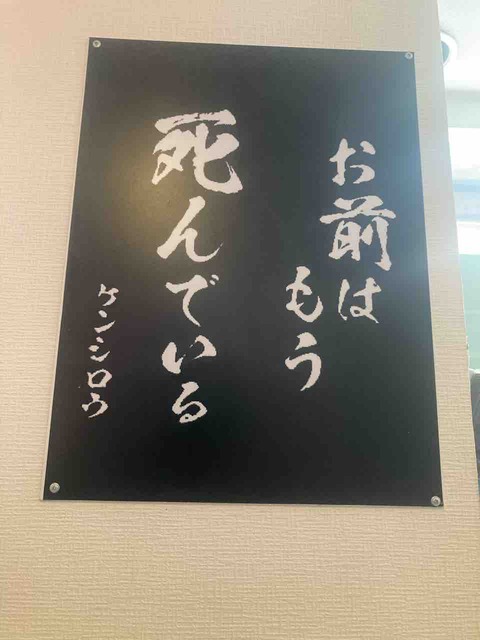 お前は
もう
死んでいる
ケンシロウ